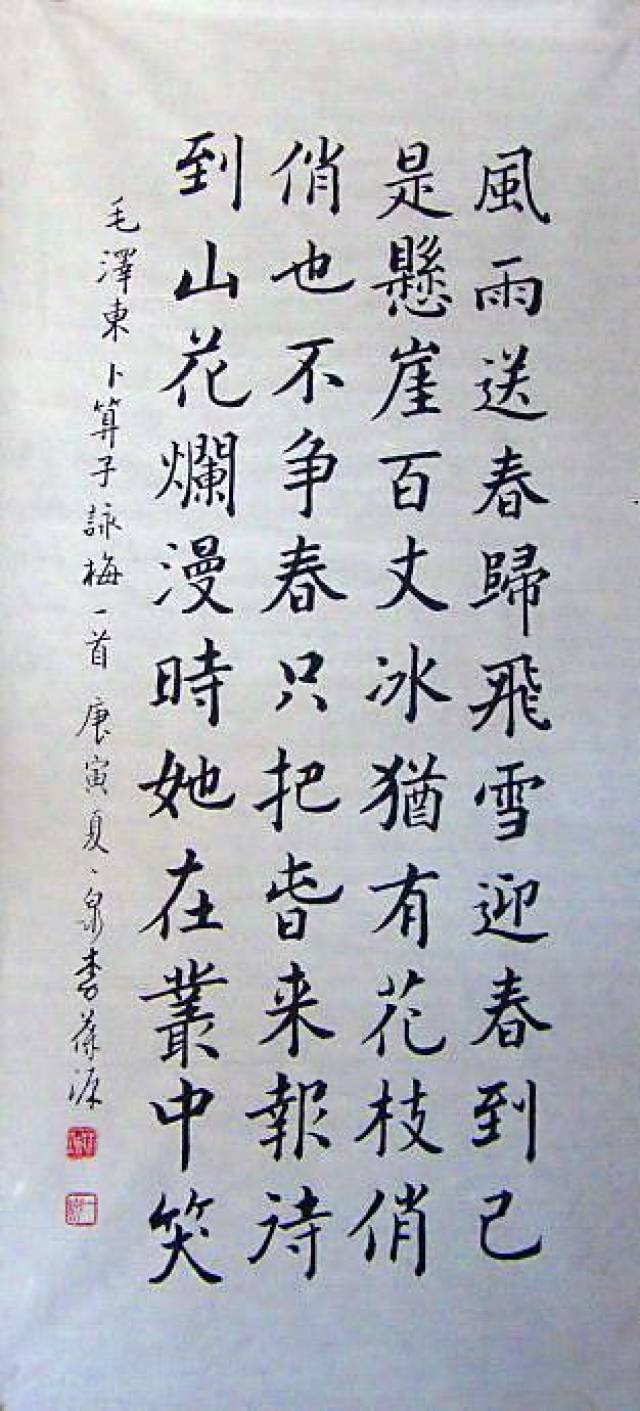 風雨送春歸飛雪迎春到已
是懸崖百丈冰猶有花枝俏
俏也不争春只把旾来報待
到山花爛漫時她在叢中笑
毛澤東卜算子詠梅一首 庚寅夏